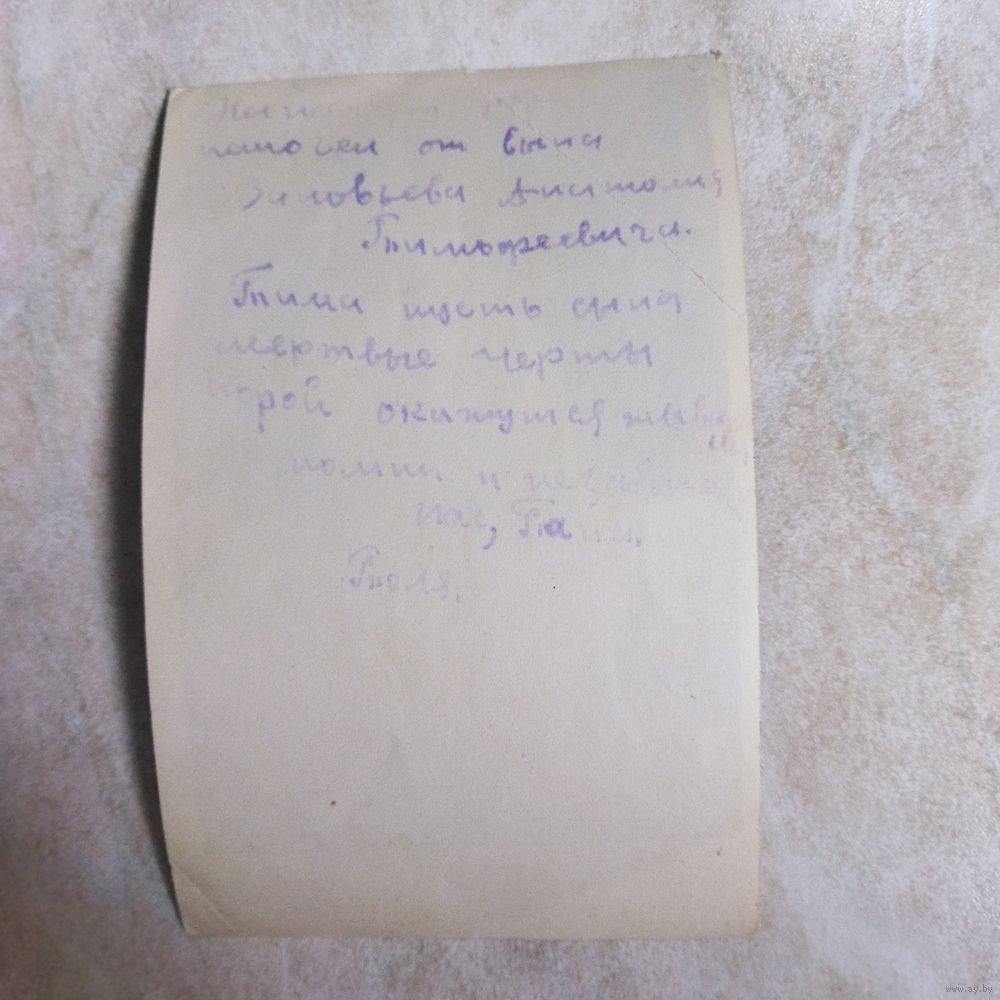 от сына
Зиловьева Анатолия
Тимофеевича.
Тима пусть сии
мертвые черты
порой окажутся живы
помни и не забывай
нас, Таня.
Толя.
www.ay.by